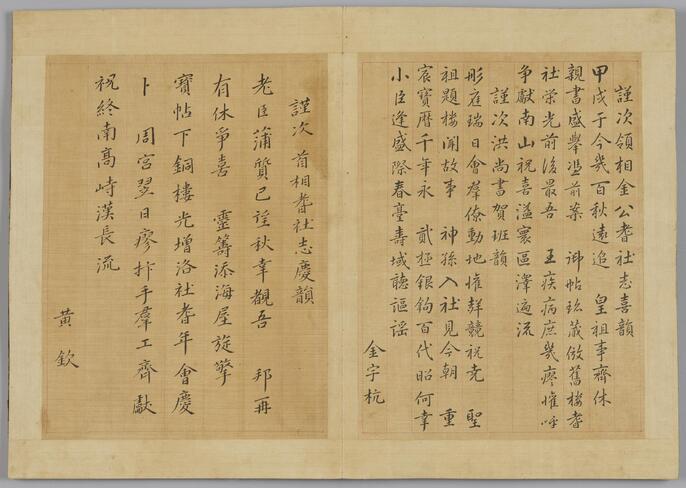 謹次領相金公耆社志喜韻
甲戌于今幾百秋遠追 皇祖事齊休
親書盛擧馮前案 御帖珎藏倣舊樓耆
社榮光前後最吾 王疾病庶幾瘳懽呼
爭獻南山祝喜溢寰區澤遍流
謹次洪尚書賀班韻
彤庭瑞日會羣僚動地懽聲競祝堯 聖
祖題樓聞故事 神孫入社見今朝 重
宸寶曆千年永 貳極銀鉤百代昭何幸
小臣逢盛際春臺壽域聽謳謠
金宇杭
謹次 首相耆社志慶韻
老臣蒲質已望秋幸覩吾 邦再
有休爭喜 靈籌添海屋旋擎
寶帖下銅樓光增洛社耆年會慶
卜 周宮翌日瘳抃手羣工齊獻
祝終南高峙漢長流
黃欽